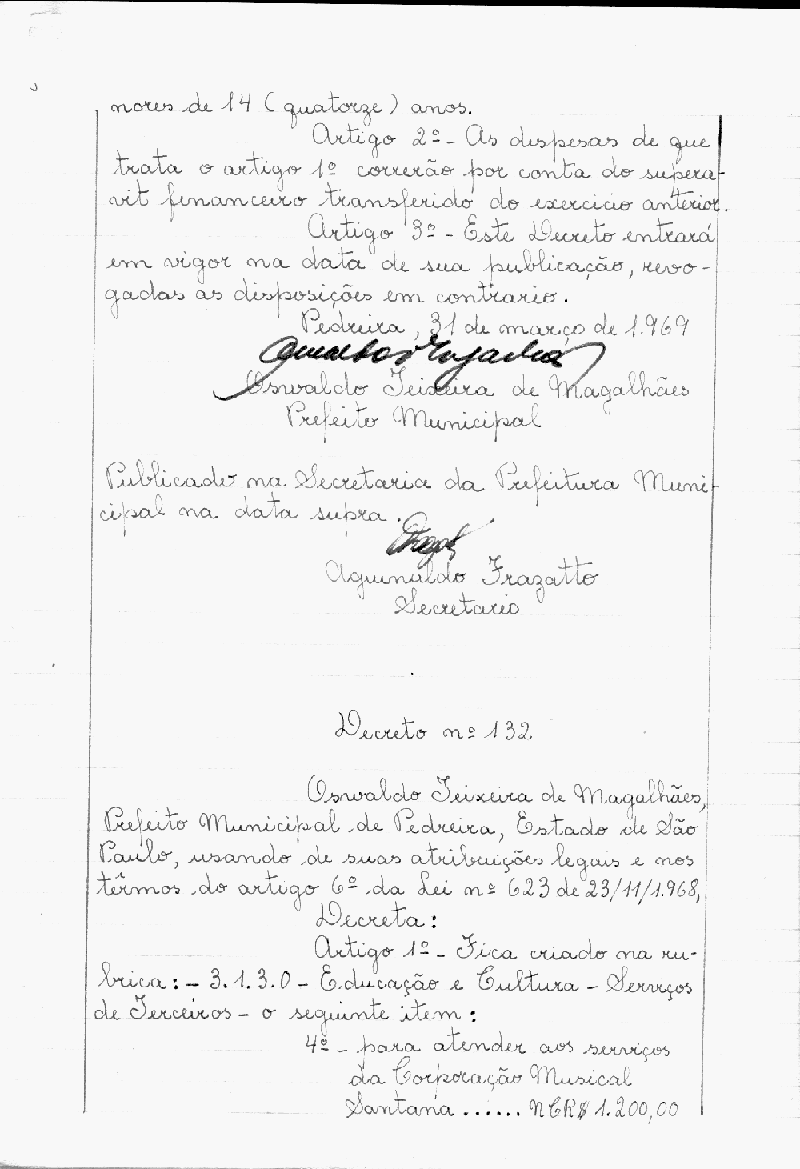 nores de 14 (quatorze) anos.
Artigo 2º - As dispesas de que
trata o artigo 1º correrão por conta do supera-
vit financeiro transferido do exercicio anterior.
Artigo 3º - Este Decreto entrará
em vigor na data de sua publicação, revo-
gadas as disposições em contrario.
Pedreira, 31 de março de 1.969
Oswaldo Teixeira de Magalhães
Prefeito Municipal
Publicado na Secretaria da Prefeitura Muni-
cipal na data supra.
Aguinaldo Frazatto
Secretario
Decreto nº 132.
Oswaldo Teixeira de Magalhães,
Prefeito Municipal de Pedreira, Estado de São
Paulo, usando de suas atribuições legais e nos
têrmos do artigo 6º da Lei nº 623 de 23/11/1.968,
Decreta:
Artigo 1º - Fica criado na ru-
brica: - 3.1.3.0 - Educação e Cultura - Serviços
de Terceiros - o seguinte item:
4º - para atender aos serviços
da Corporação Musical
Santana ...... NCR$ 1.200,00